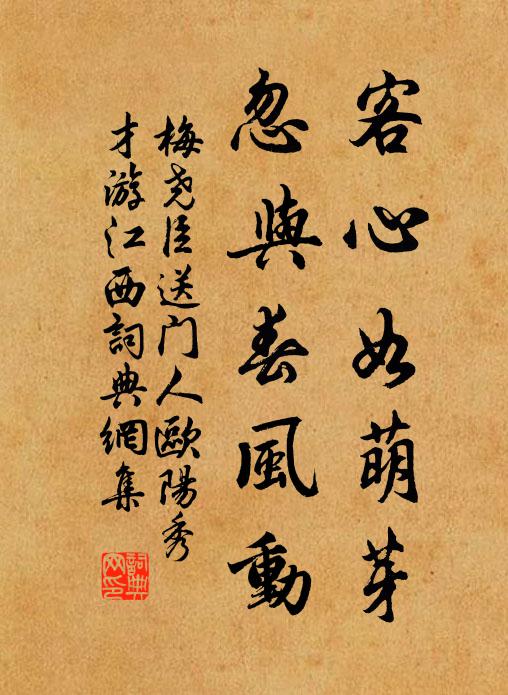 客心如萌芽
忽與春風動
梅尧臣送门人歐陽秀
才游江西詞典網集
詞典
网印